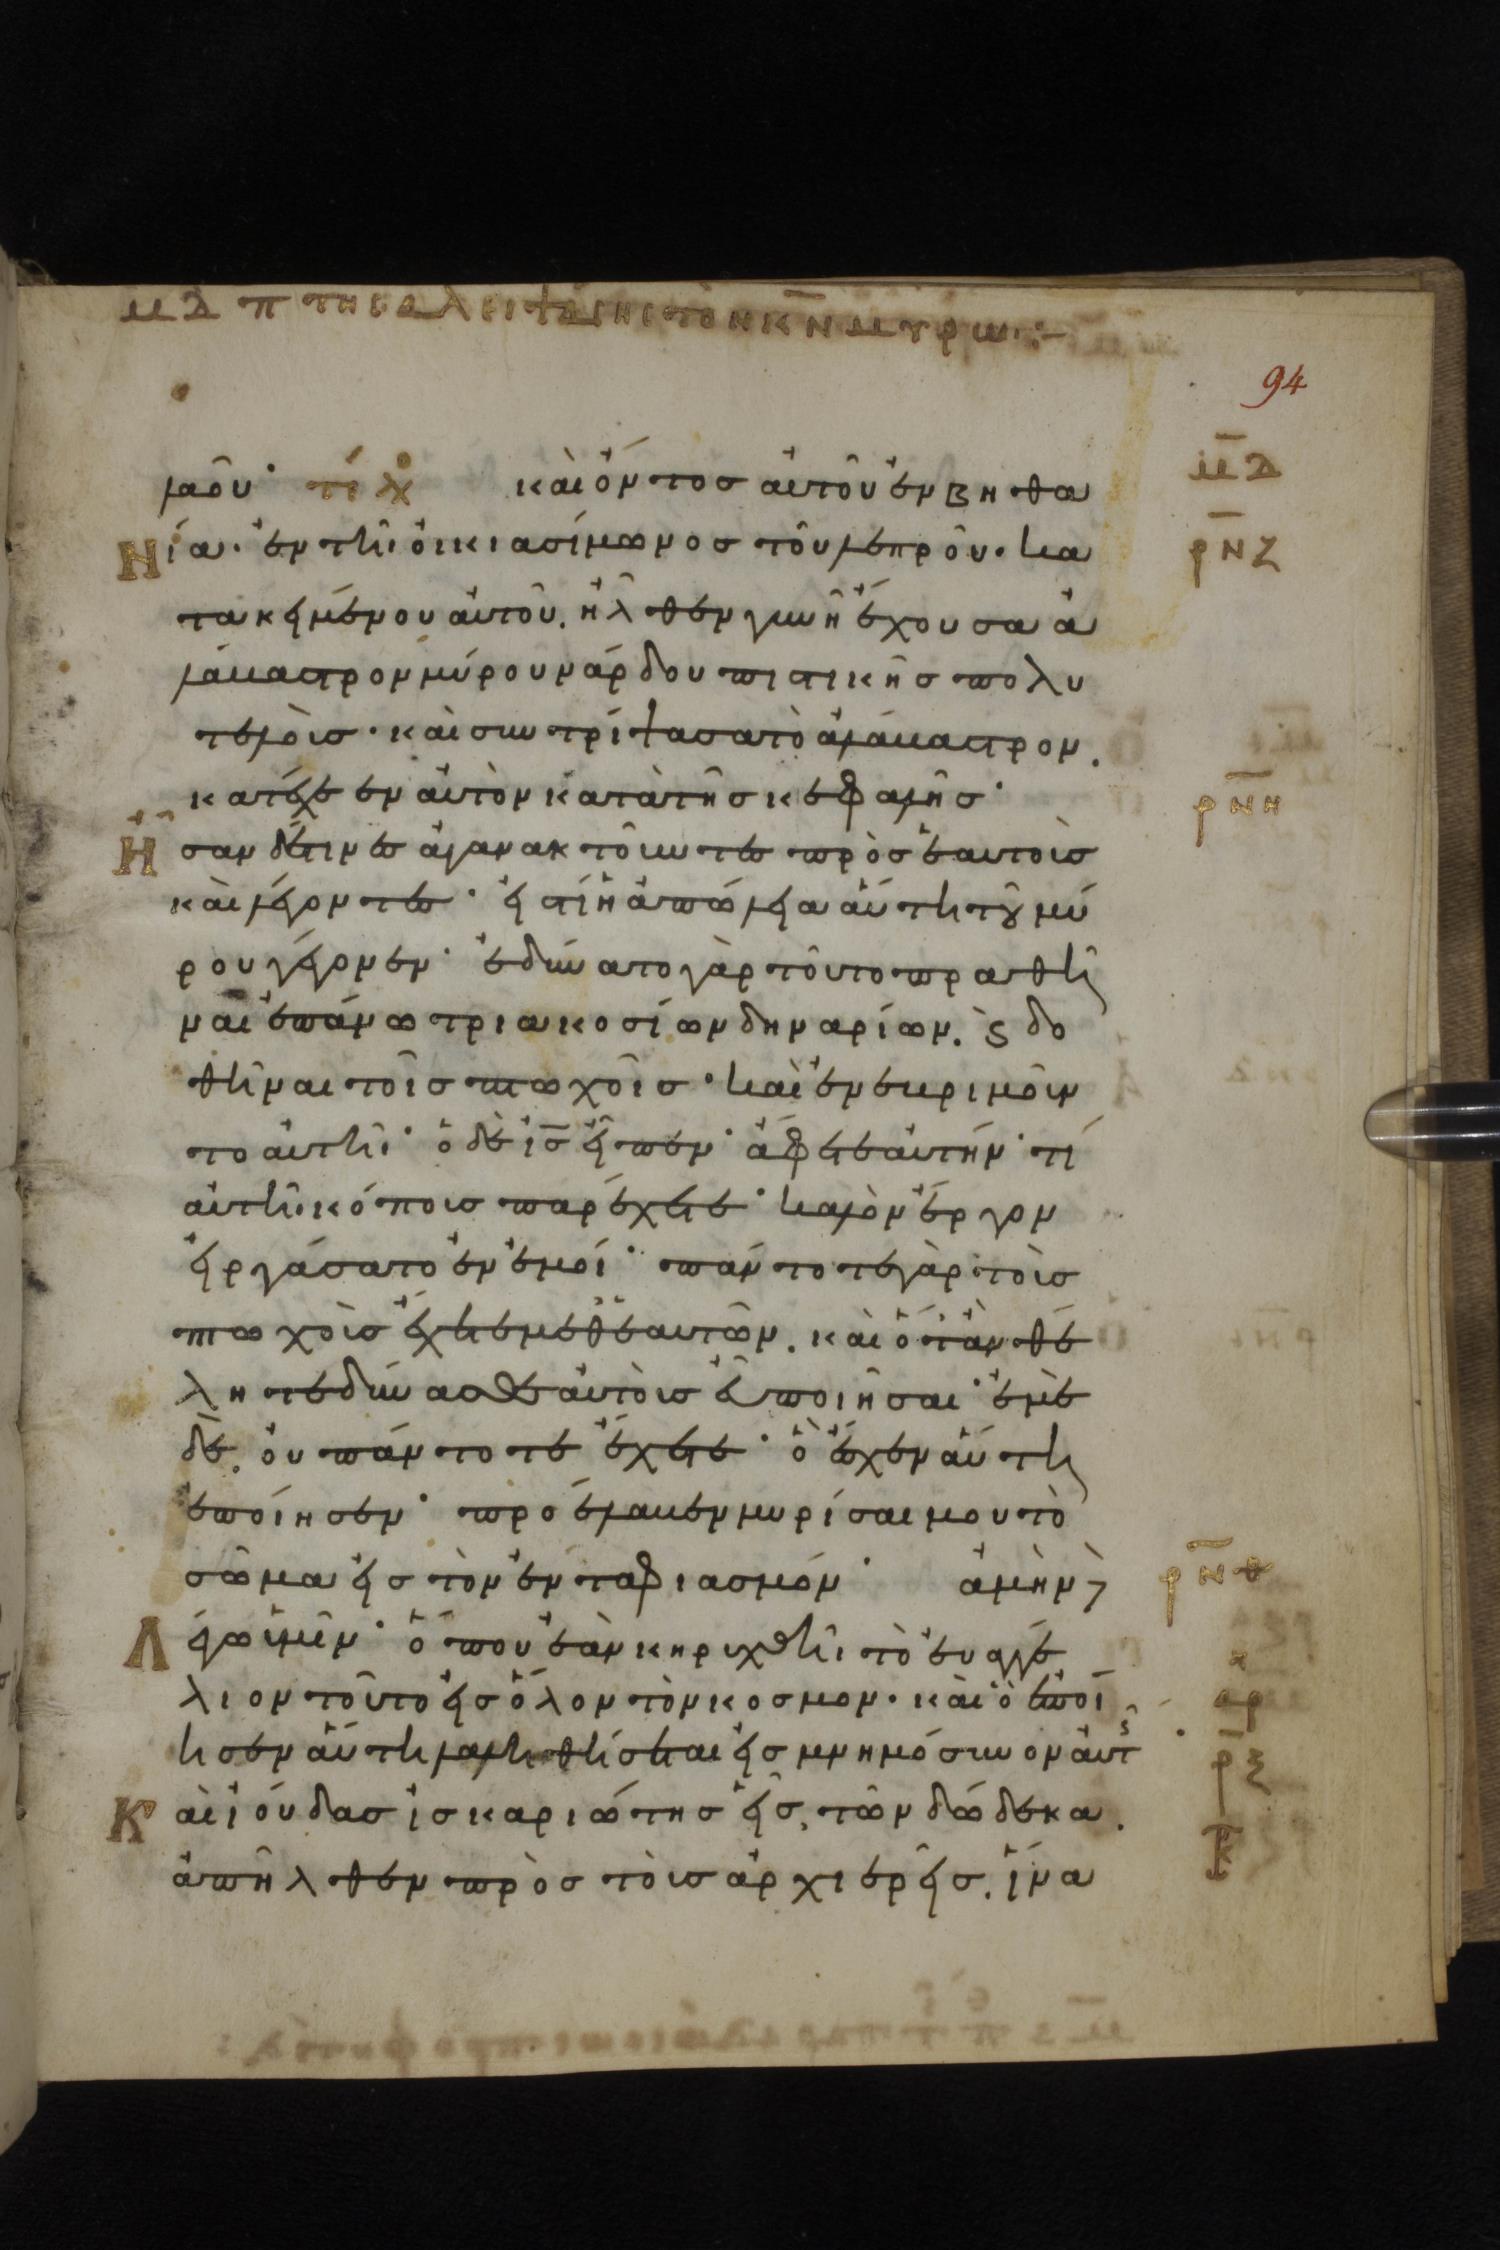 μδ π τῆς ἀλειψάσης τὸν κ̅ν̅ μύρω:-
94
λαοῦ· τέλος καὶ ὄντος αὐτοῦ ἐν βηθα
μ̅δ
νία· ἐν τῆι οἰκια σίμωνος τοῦ λεπροῦ· κα
ρ̅ν̅ζ
τακειμένου αὐτοῦ. ἦλθεν γυνὴ ἔχουσα ἀ
λάβαστρον μύρου νάρδου πιστικῆς πολυ
τελοῦς· καὶ συντρίψασα τὸ ἀλάβαστρον.
κατέχεεν αὐτὸν κατὰ τῆς κεφαλῆς·
ρ̅ν̅η
Ἦσαν δέ τινες ἀγανακτοῦντες πρὸς ἑαυτοὺς
καὶ λέγοντες· εἰς τί ἡ ἀπώλεια αὕτη τοῦ μύ
ρου γέγονεν· ἐδύνατο γὰρ τοῦτο πραθῆ
ναι ἐπάνω τριακοσίων δηναρίων. ϗ δο
θῆναι τοῖς πτωχοῖς· καὶ ἐνεβριμοῦν
το αὐτῆι· ὁ δὲ ι̅ς̅ εἶπεν· ἄφετε αὐτήν· τί
αὐτῆ κόπους παρέχετε· καλὸν ἔργον
εἰργάσατο ἐν ἐμοί· πάντοτε γὰρ τοὺς
πτωχοὺς ἔχετε μεθ' ἑαυτῶν. καὶ ὅταν θέ
λητε δύνασθε αὐτοὺς εὖ ποιῆσαι· ἐμὲ
δὲ. οὐ πάντοτε ἔχετε· ὃ ἔσχεν αὕτη
ἐποίησεν· προέλαβεν μυρίσαι μου τὸ
σῶμα εἰς τὸν ἐνταφιασμόν· ἀμὴν
ρ̅ν̅θ
Λέγω ὑμῖν· ὅπου ἐὰν κηρυχθῆι τὸ εὐαγγέ
λιον τοῦτο εἰς ὅλον τὸν κόσμον· καὶ ὃ ἐποί
αρ
ησεν αὕτη λαληθήσεται εἰς μνημόσυνον αὐτῆς
ρ̅ξ
Καὶ ἰούδας ἰσκαριώτης εἷς. τῶν δώδεκα.
ἀπῆλθεν πρὸς τοὺς ἀρχιερεῖς. ἵνα